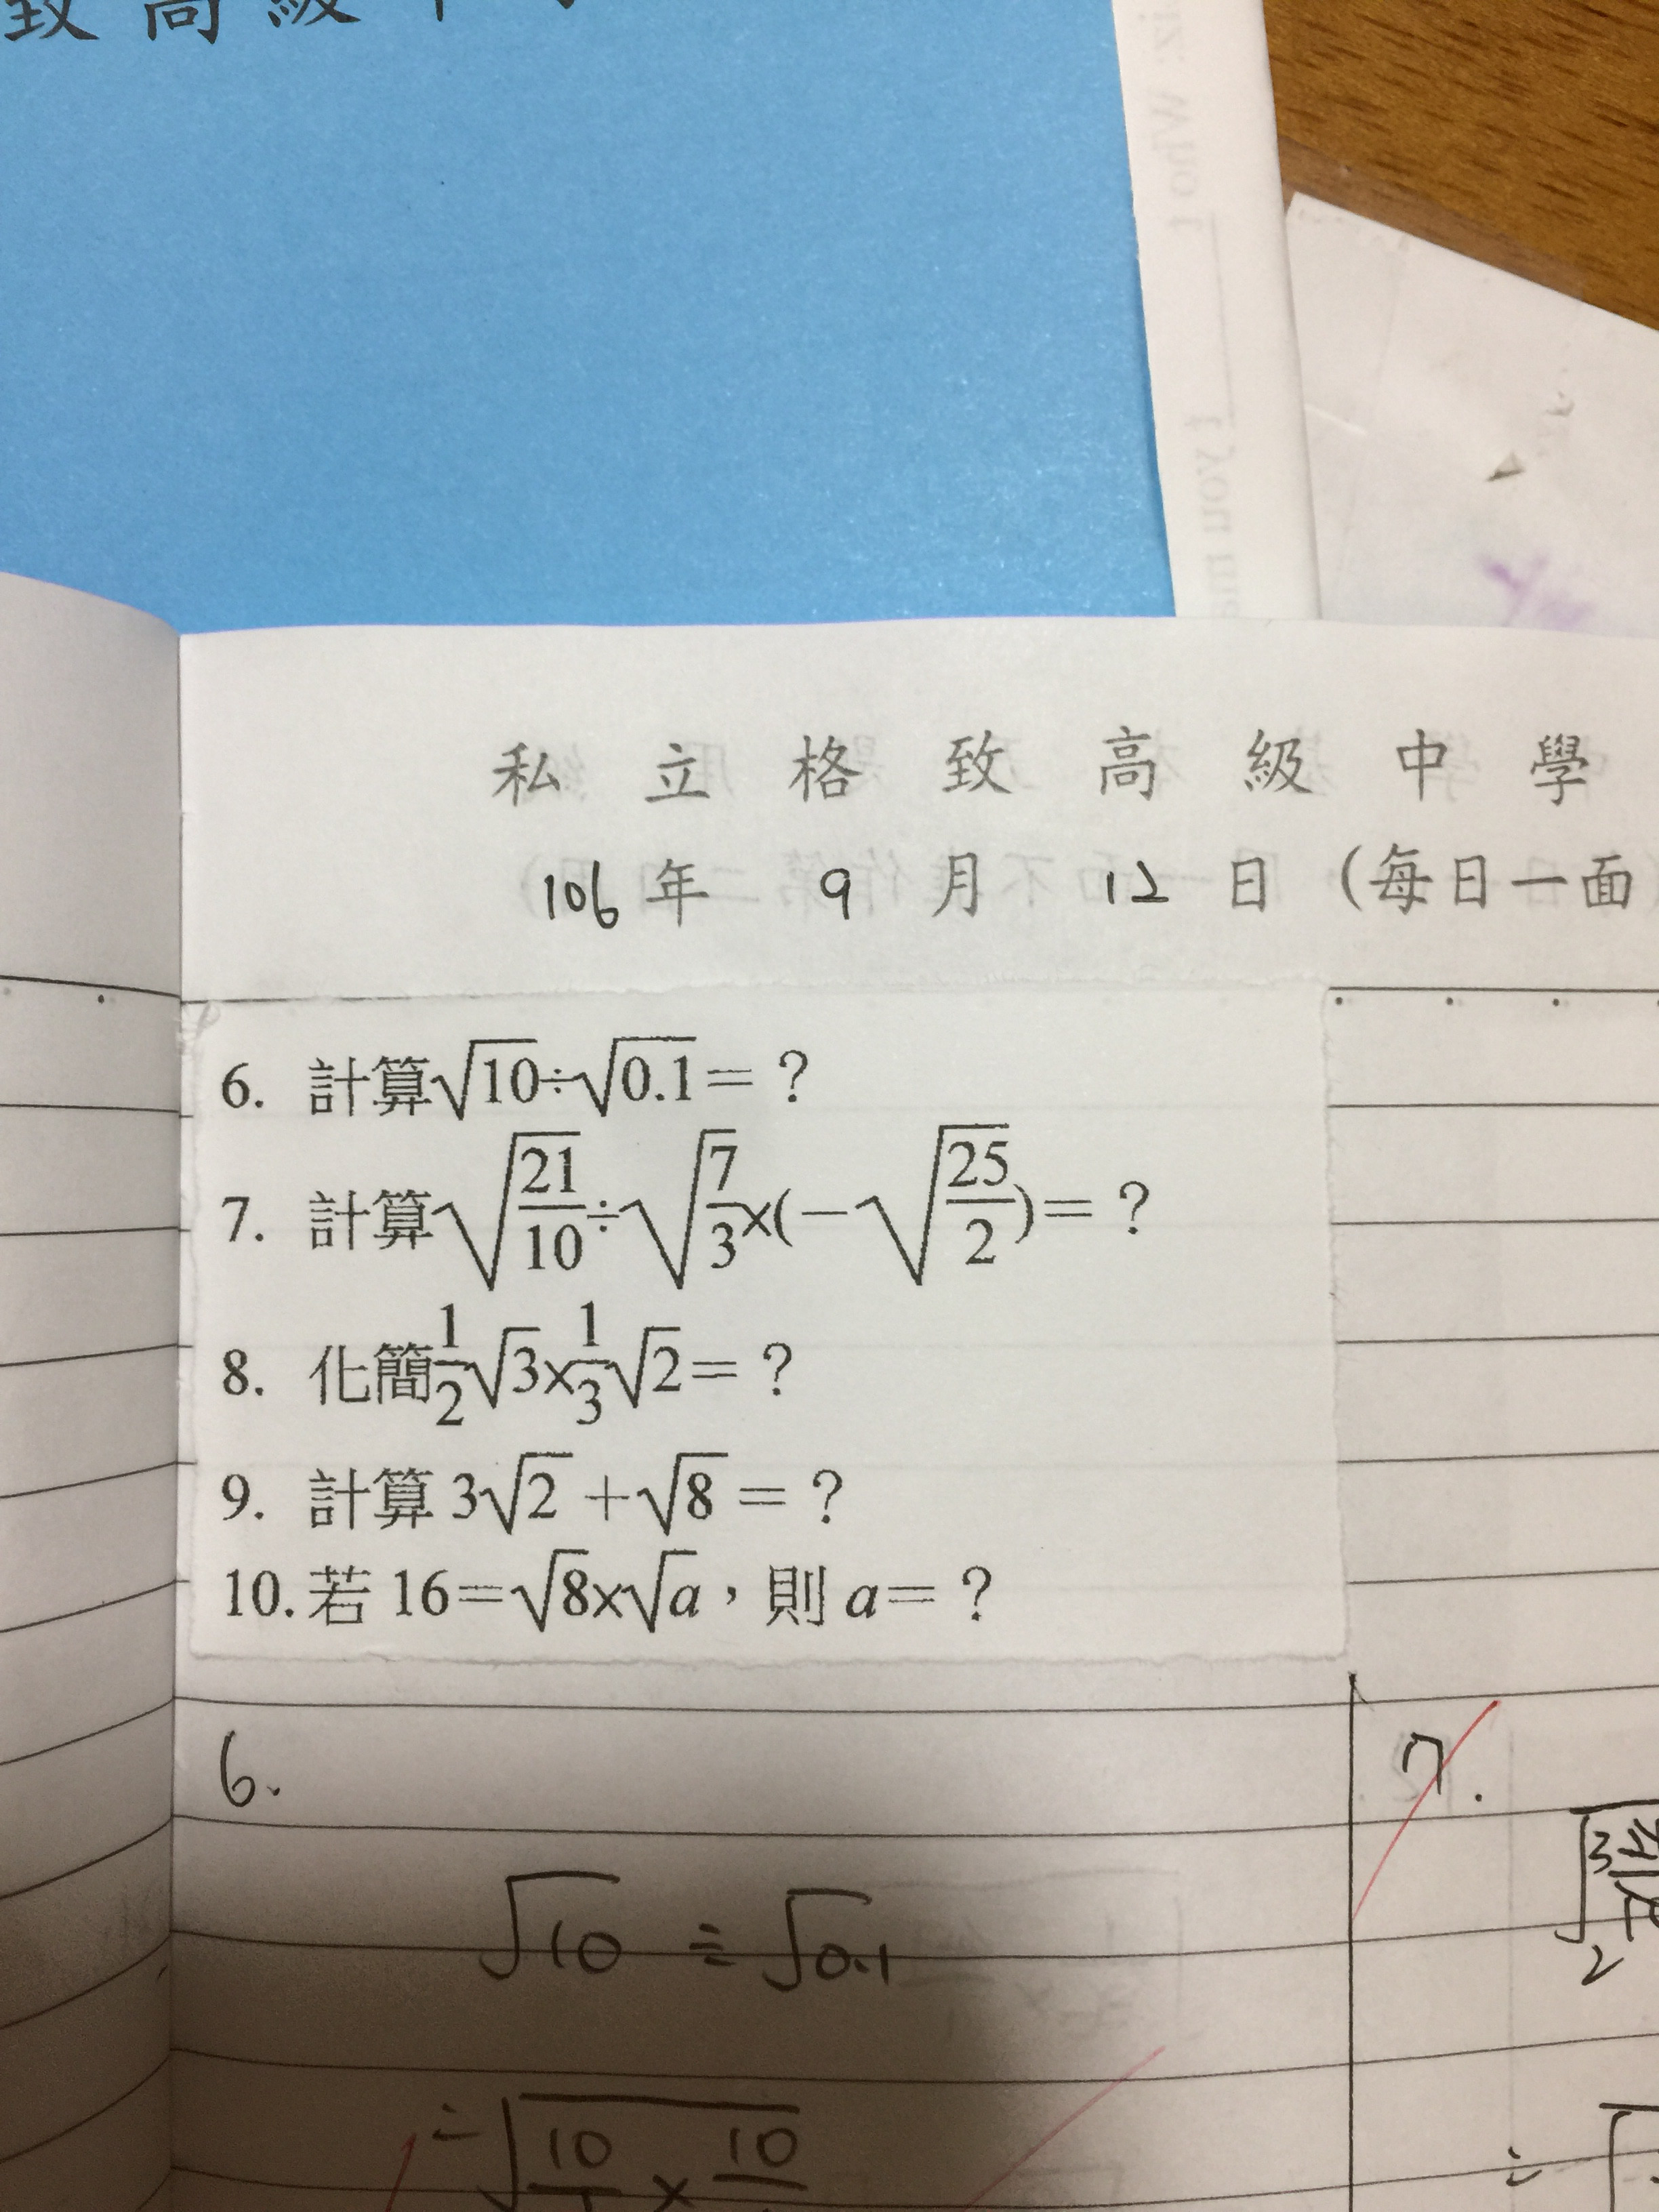 致高級中
私立格致高級中學
106年 9月 12日(每日一面
6. 計算√10÷√0.1=?
7. 計算√(21/10)÷√(7/3)×(-√(25/2))=?
8. 化簡1/2√3×1/3√2=?
9. 計算 3√2+√8=?
10.若 16=√8×√a,則 a=?
6.
√10 ÷ √0.1
÷√10 × 10
7.